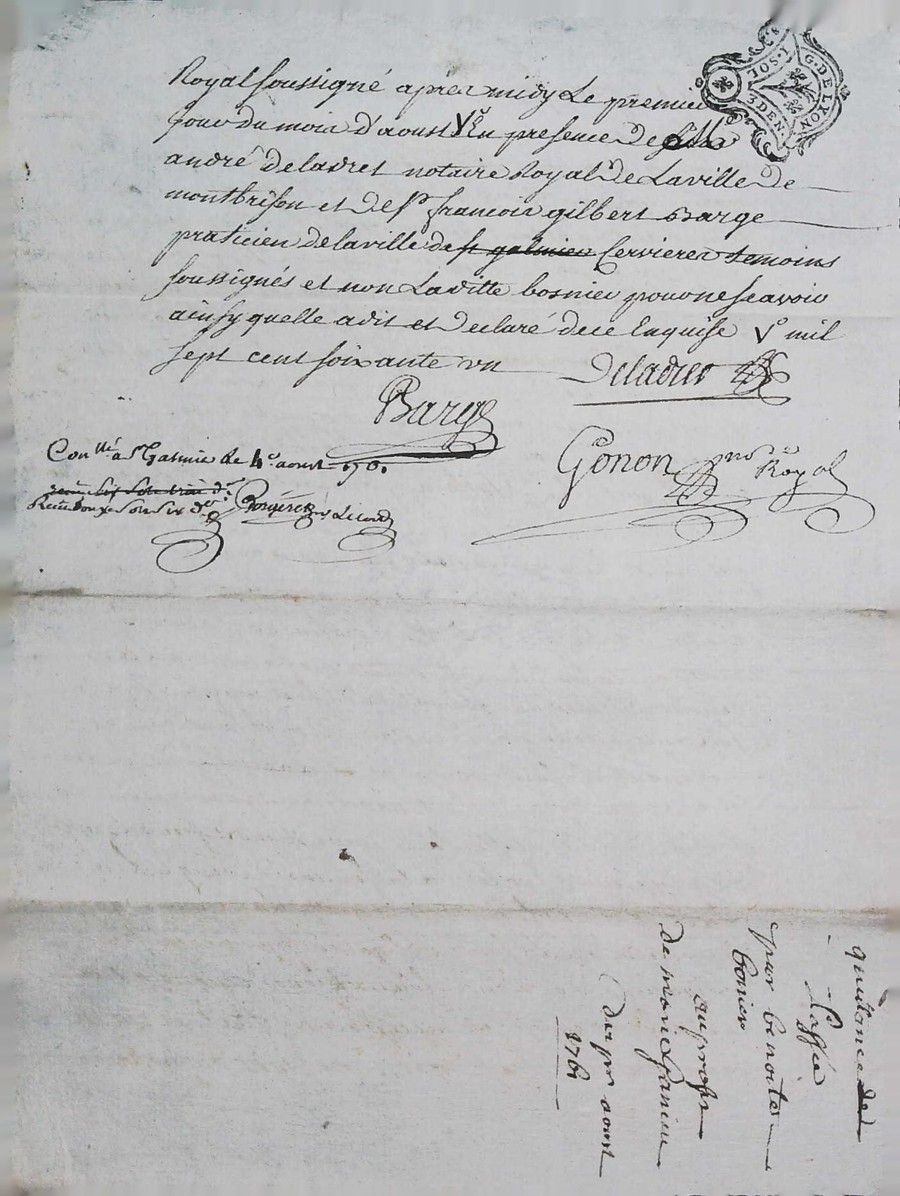 Royal soussigné après midy Le premier
jour du mois d'aoust V.e En presence de
andré Deladret notaire Royal de Laville De
montbrison et de sr francois gilbert Barge
praticien de laville de st galmier Cervieres temoins
soussignés et non Laditte bosnier pour ne scavoir
ainsy quelle a dit et declaré de ce Enquise V.e mil
sept cent soixante un
Barge
G. DE LYON
10S. 1
3 DEN.
Gonon no.re Royal
Con.llé a St Galmier le 4.e aoust 1761
Recu Douze sols six d.ers
quittance de
passée
par benoite
bonier
au profit
De
du pr aoust
1761